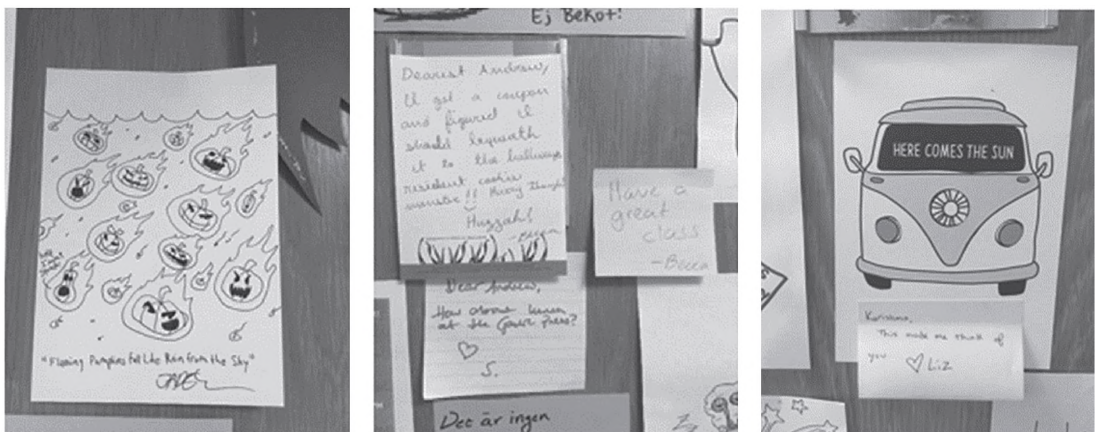 "Flaming Pumpkins fall Like Rain from the Sky"
Ej Bekot!
Dearest Andrew,
I got a coupon
and figured I
should bequeath
it to the hallways
resident cookie
monster!!
Huzzah!
Have a
great
class
-Becca
Dear Andrew,
How about lunch
at the
S.
Det är ingen
HERE COMES THE SUN
This made me think of
you ♡ Liz